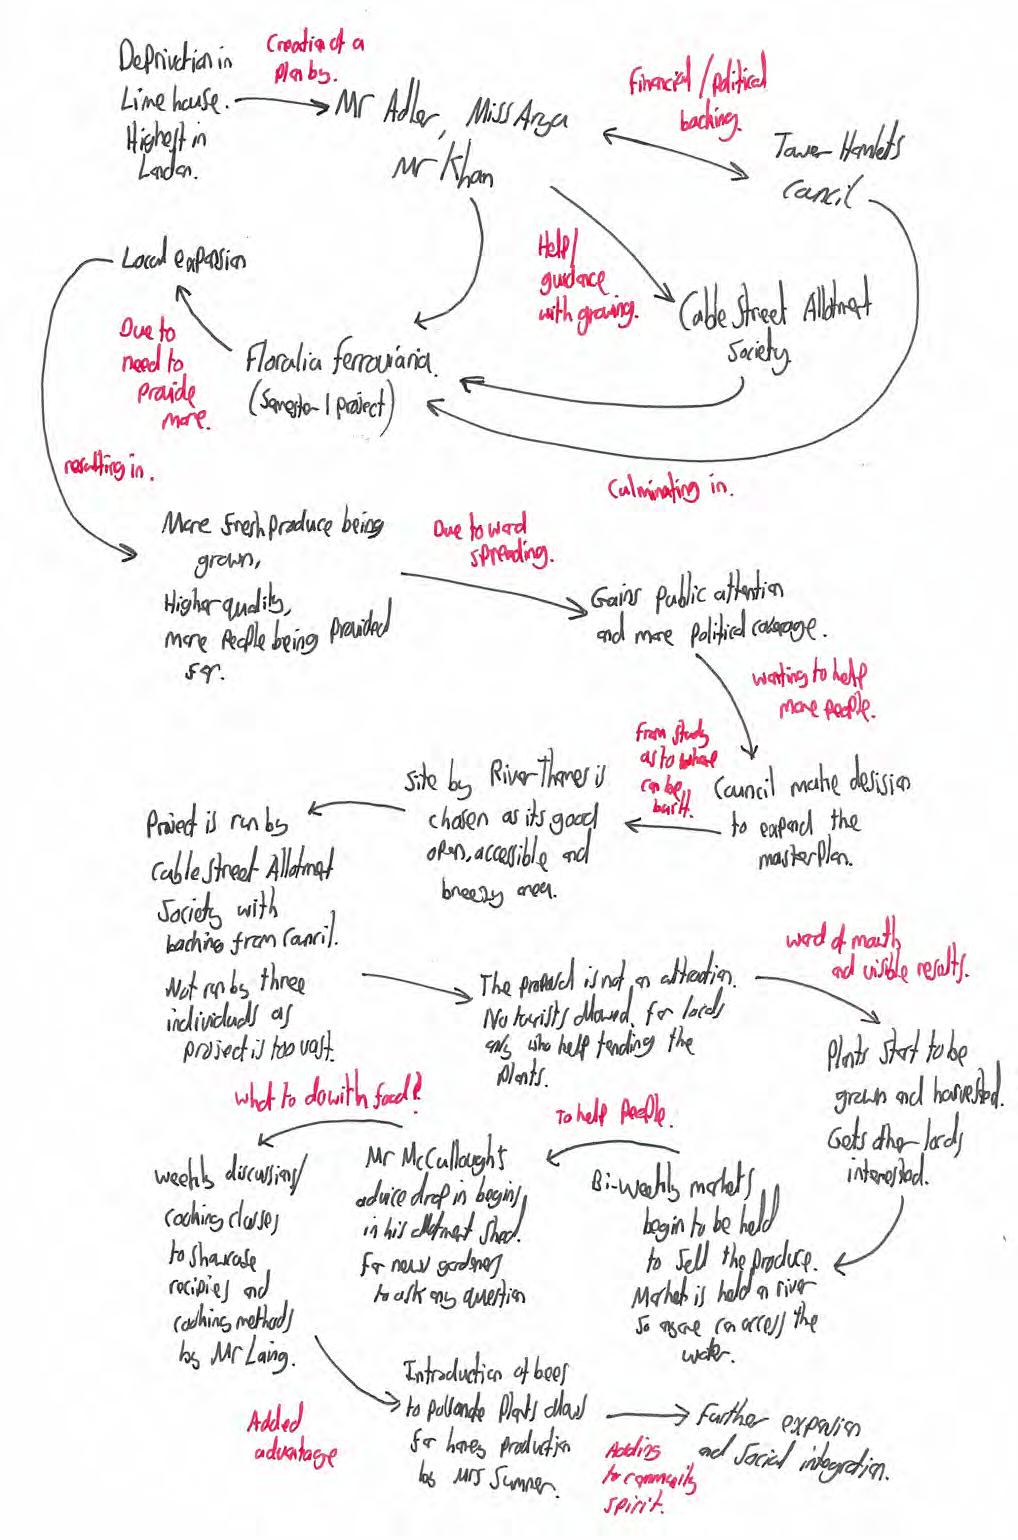 Deprivation in
Limehouse.
Highest in
London.
Creation of a
plan by.
Mr Adler, Miss Arya
Mr Khan
Financial / Political
backing.
Tower Hamlets
Council
Help/
guidance
with growing.
Cable Street Allotment
Society.
Local expansion
Due to
need to
provide
more.
Floralia ferroviaria.
(Semester 1 project)
Culminating in.
resulting in.
More fresh produce being
grown,
Higher quality,
more people being provided
for.
Due to word
spreading.
Gains public attention
and more political coverage.
wanting to help
more people.
Council make desision
to expand the
masterplan.
From study
as to where
can be
built.
Site by River Thames is
chosen as its good
open, accessible and
breezy area.
Project is run by
Cable Street Allotment
Society with
backing from Council.
Not run by three
individuals as
project is too vast.
The proposal is not an attraction.
No tourists allowed, for locals
only who help tending the
plants.
word of mouth
and visible results.
Plants start to be
grown and harvested.
Gets other locals
interested.
Bi-weekly markets
begin to be held
to sell the produce.
Market is held on river
so anyone can access the
water.
To help people.
Mr McCullough's
advice drop in begins,
in his allotment shed.
for new gardeners
to ask any question
what to do with food?
weekly discussion/
cooking classes
to showcase
recipies and
cooking methods
by Mr Laing.
Added
advantage
Introduction of bees
to pollonate plants allows
for honey production
by Mrs Sumner.
Adding
to community
spirit.
Further expansion
and social integration.